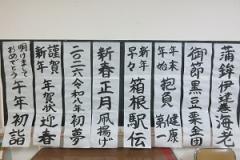 蒲鉾伊達巻海老
御節黒豆栗金団
年末年始抱負健康
新年早々箱根駅伝
新春正月凧揚げ
二〇二六令和八年初夢
謹賀新年年賀状迎春
明けましておめでとう午年初詣